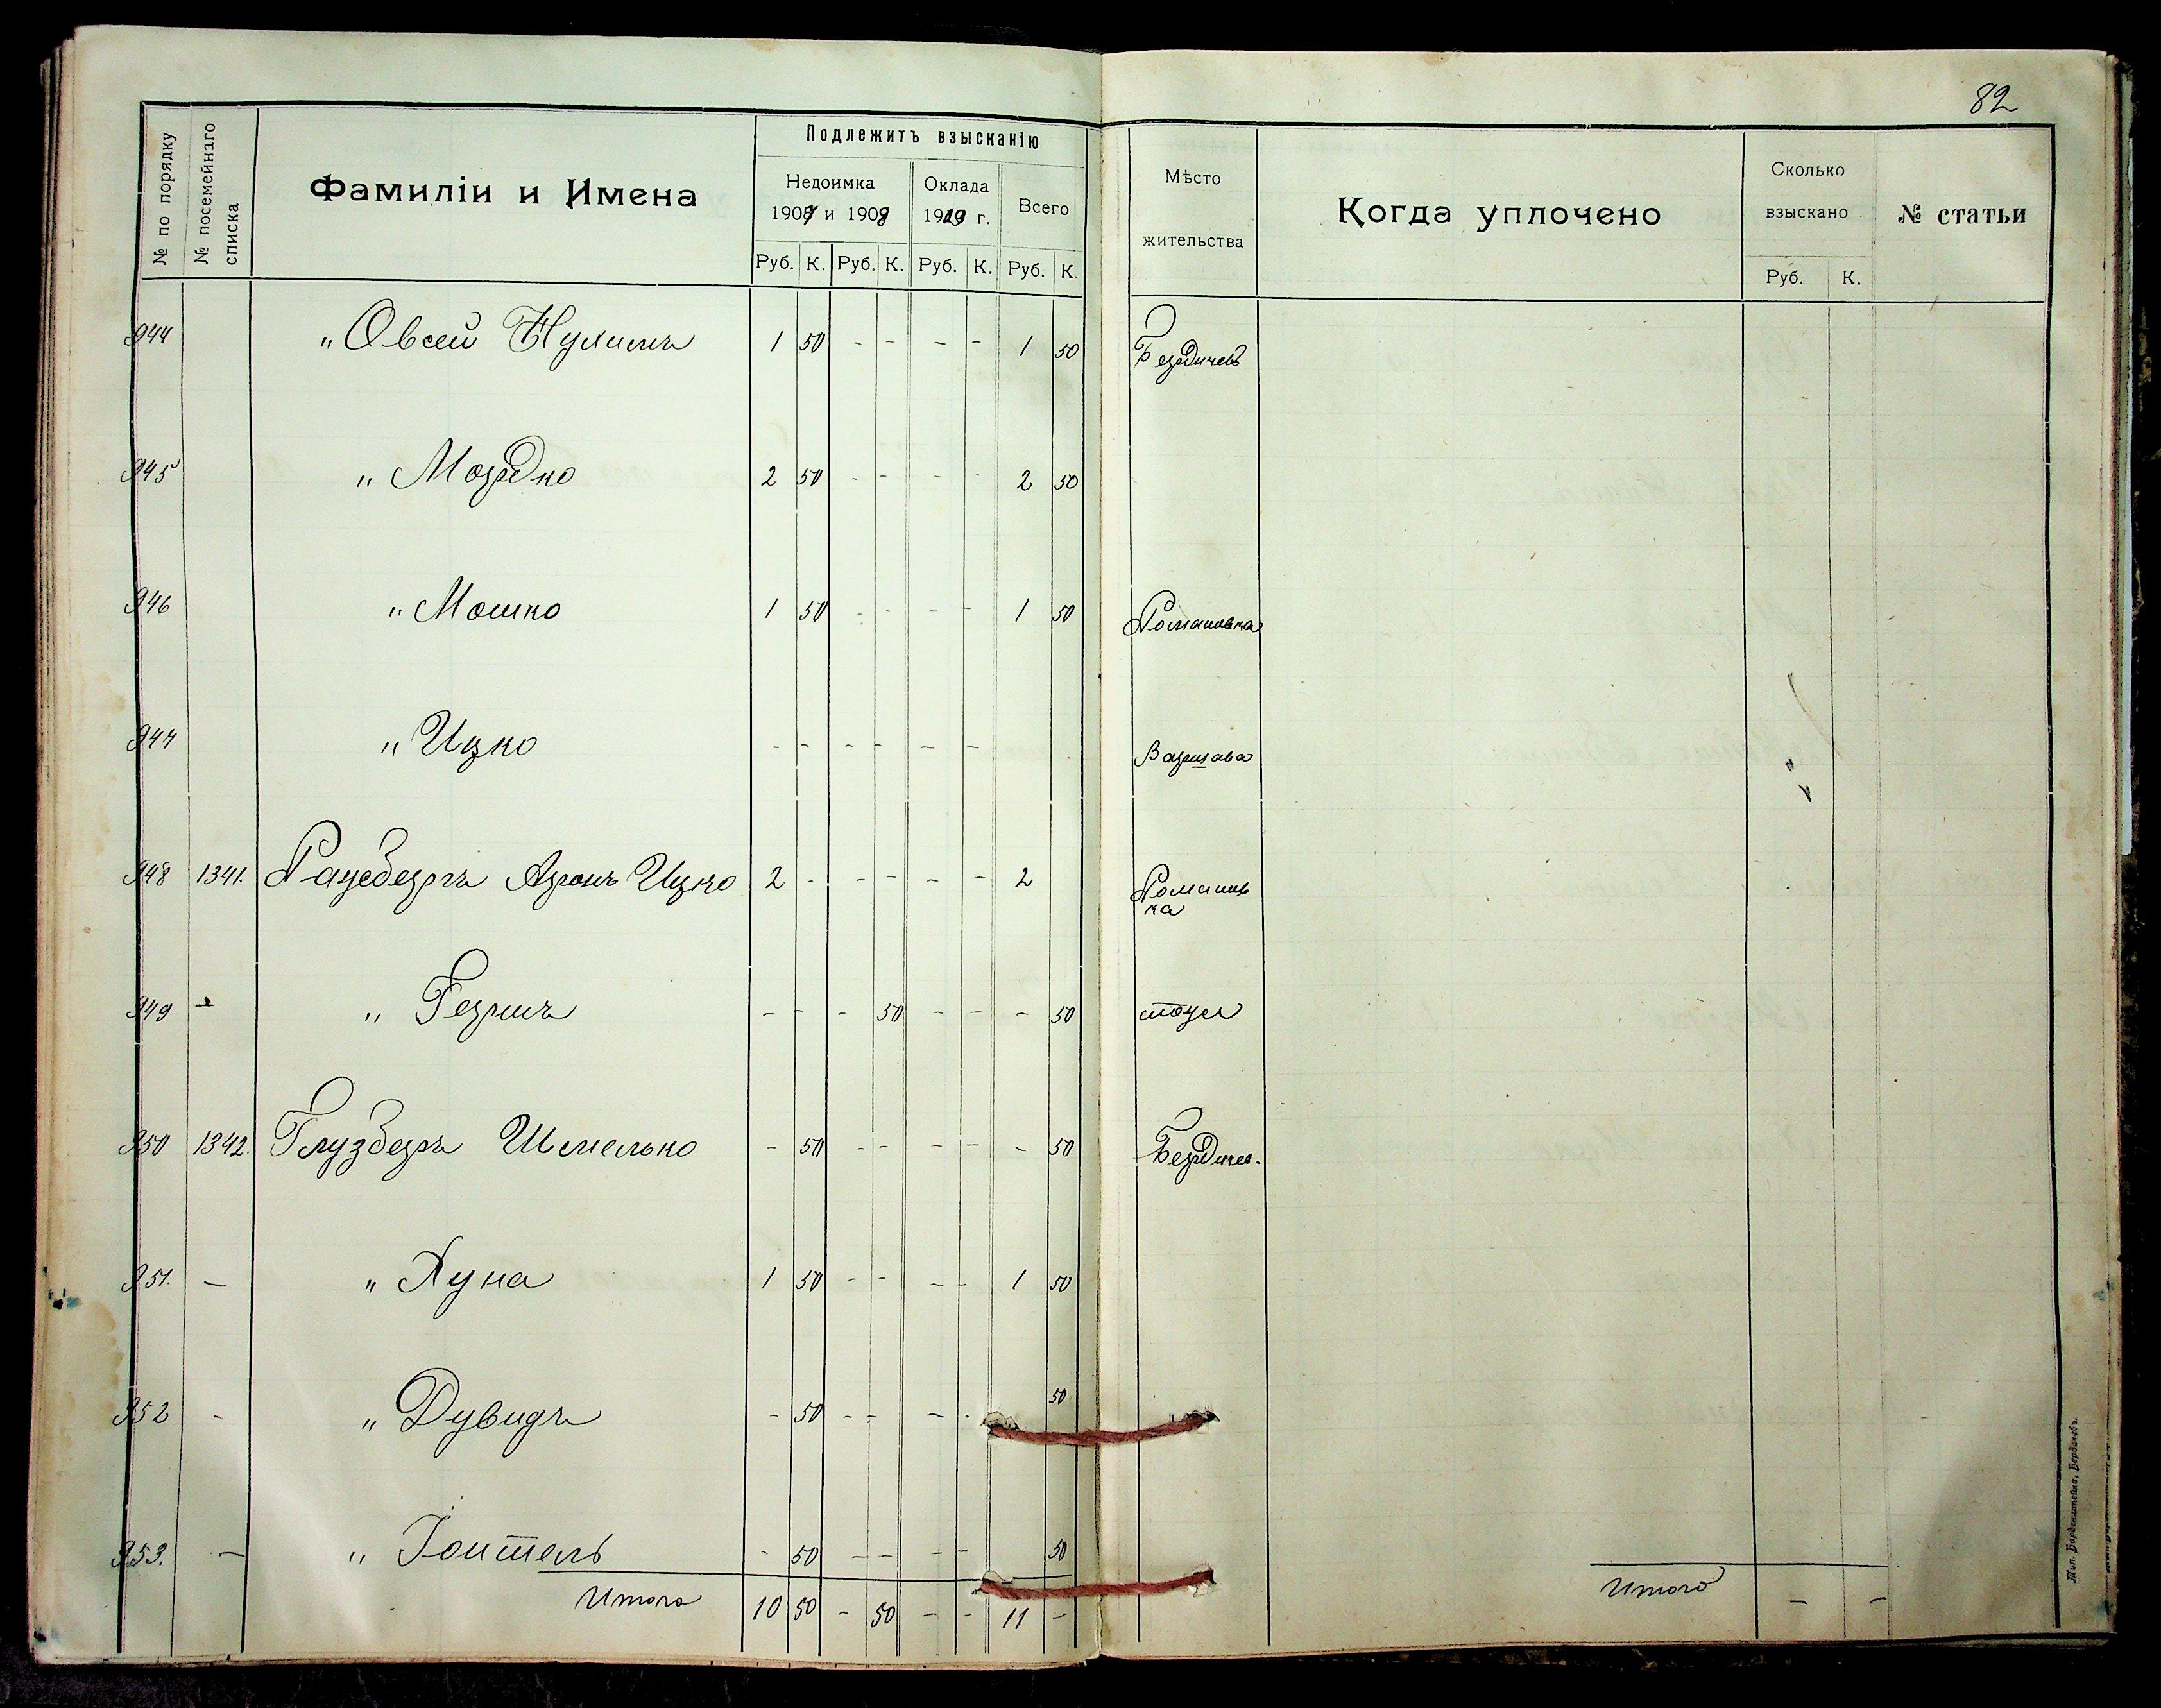 82
№ по порядку
№ посемейнаго списка
Фамиліи и Имена
Подлежитъ взысканію
Недоимка
1907 и 1908
Оклада
1909 г.
Всего
Руб. К. Руб. К. Руб. К. Руб. К.
Мѣсто
жительства
Когда уплочено
Сколько
взыскано
Руб. К.
№ статьи
944 " Овсей Нухимъ 1 50 - - - - 1 50 Бердичевъ
945 " Мордко 2 50 - - - - 2 50
946 " Мошко 1 50 - - - - 1 50 Романовка
947 " Ицко - - - - - - Варшава
948 1341. Раусбергъ Аронъ Ицко 2 - - - - - 2 Романов
ка
949 - " Гершъ - - - 50 - - - 50 тоже
950 1342. Глузберъ Шмелько - 50 - - - - - 50 Бердичев.
951. — " Хуна 1 50 - - - - 1 50
952 - " Дувидъ - 50 - - - - 50
953. — " Іоитель - 50 - - - - 50
Итого 10 50 - 50 - - 11 -
Итого - -
Тип. Барденштейна, Бердичевъ.